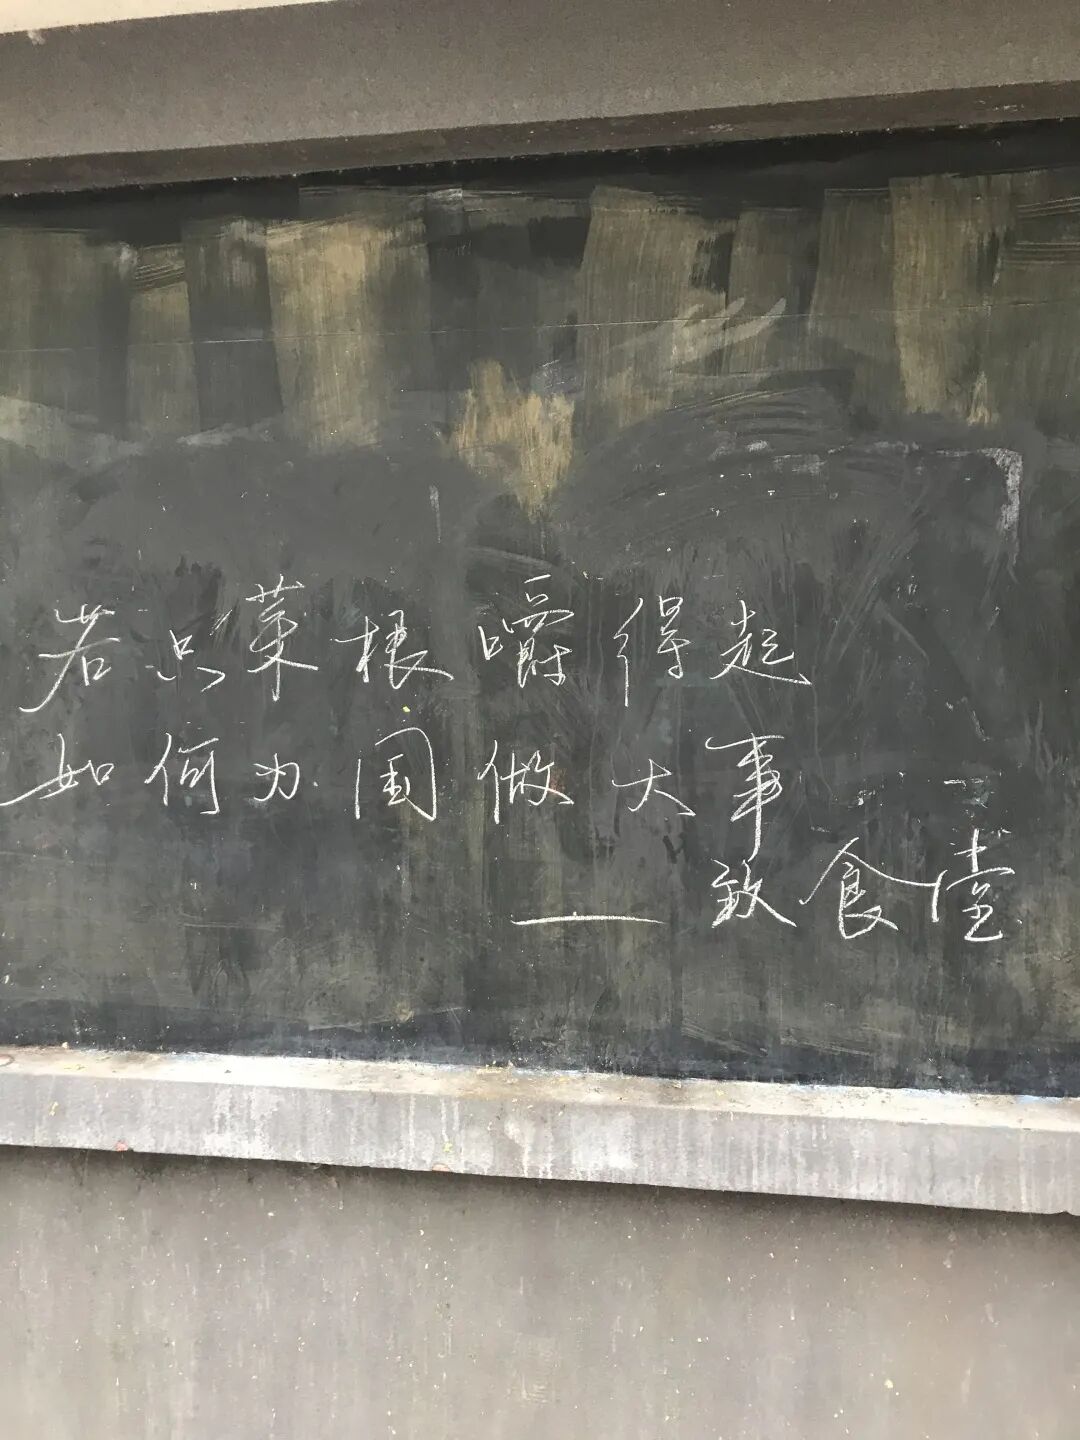 若只菜根嚼得起
如何为国做大事
——致食堂